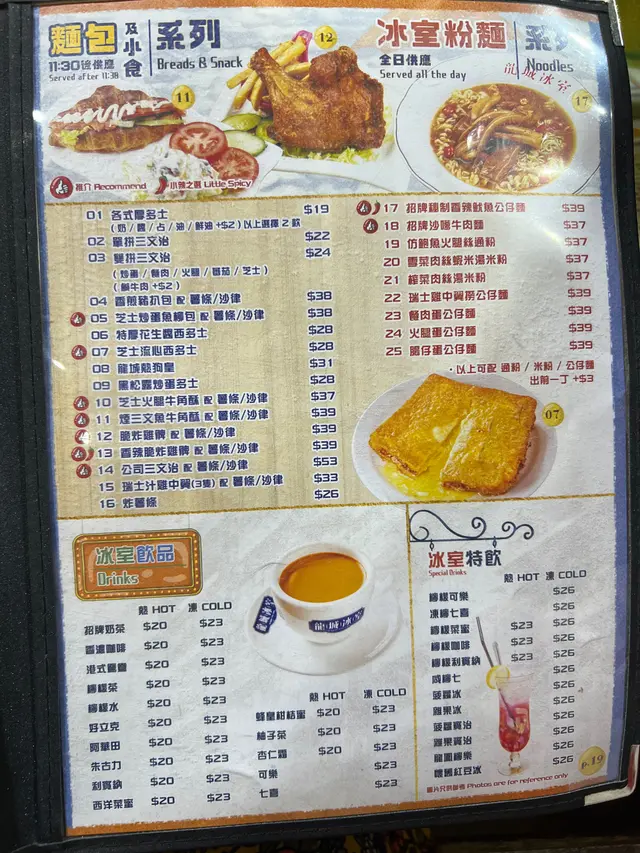 麵包 及小食 系列
11:30後供應
Served after 11:30
Breads & Snack
12
11
推介 Recommend
小辣之選 Little Spicy
冰室粉麵 系列
全日供應
Served all the day
Noodles
龍城冰室
17
01 各式厚多士 $19
(奶/醬/占/油/鮮油 +$2) 以上選擇2款
02 單拼三文治 $22
03 雙拼三文治 $24
(炒蛋/餐肉/火腿/蕃茄/芝士)
(鹹牛肉 +$2)
04 香煎豬扒包 配 薯條/沙律 $38
05 芝士炒蛋魚柳包 配 薯條/沙律 $38
06 特厚花生醬西多士 $28
07 芝士流心西多士 $28
08 龍城熱狗皇 $31
09 黑松露炒蛋多士 $28
10 芝士火腿牛角酥 配 薯條/沙律 $37
11 煙三文魚牛角酥 配 薯條/沙律 $39
12 脆炸雞髀 配 薯條/沙律 $39
13 香辣脆炸雞髀 配 薯條/沙律 $39
14 公司三文治 配 薯條/沙律 $53
15 瑞士汁雞中翼(3隻) 配 薯條/沙律 $33
16 炸薯條 $26
17 招牌秘制香辣魷魚公仔麵 $39
18 招牌沙嗲牛肉麵 $37
19 仿鮑魚火腿絲通粉 $37
20 雪菜肉絲蝦米湯米粉 $37
21 榨菜肉絲湯米粉 $37
22 瑞士雞中翼撈公仔麵 $39
23 餐肉蛋公仔麵 $39
24 火腿蛋公仔麵 $39
25 腸仔蛋公仔麵 $39
・以上可配 通粉 / 米粉 / 公仔麵
出前一丁 +$3
07
冰室飲品
Drinks
熱 HOT 凍 COLD
招牌奶茶 $20 $23
香濃咖啡 $20 $23
港式鴛鴦 $20 $23
檸檬茶 $20 $23
檸檬水 $20 $23
好立克 $20 $23
阿華田 $20 $23
朱古力 $20 $23
利賓納 $20 $23
西洋菜蜜 $20 $23
龍城冰室
熱 HOT 凍 COLD
蜂皇柑桔蜜 $20 $23
柚子茶 $20 $23
杏仁霜 $20 $23
可樂 $23
七喜 $23
冰室特飲
Special Drinks
熱 HOT 凍 COLD
檸檬可樂 $26
凍檸七喜 $26
檸檬菜蜜 $23 $26
檸檬咖啡 $23 $26
檸檬利賓納 $23 $26
咸檸七 $26
菠蘿冰 $26
雜果冰 $26
菠蘿賓治 $26
雜果賓治 $26
龍鳳檸樂 $26
懷舊紅豆冰 $26
p.19
圖片只供參考 Photos are for reference only